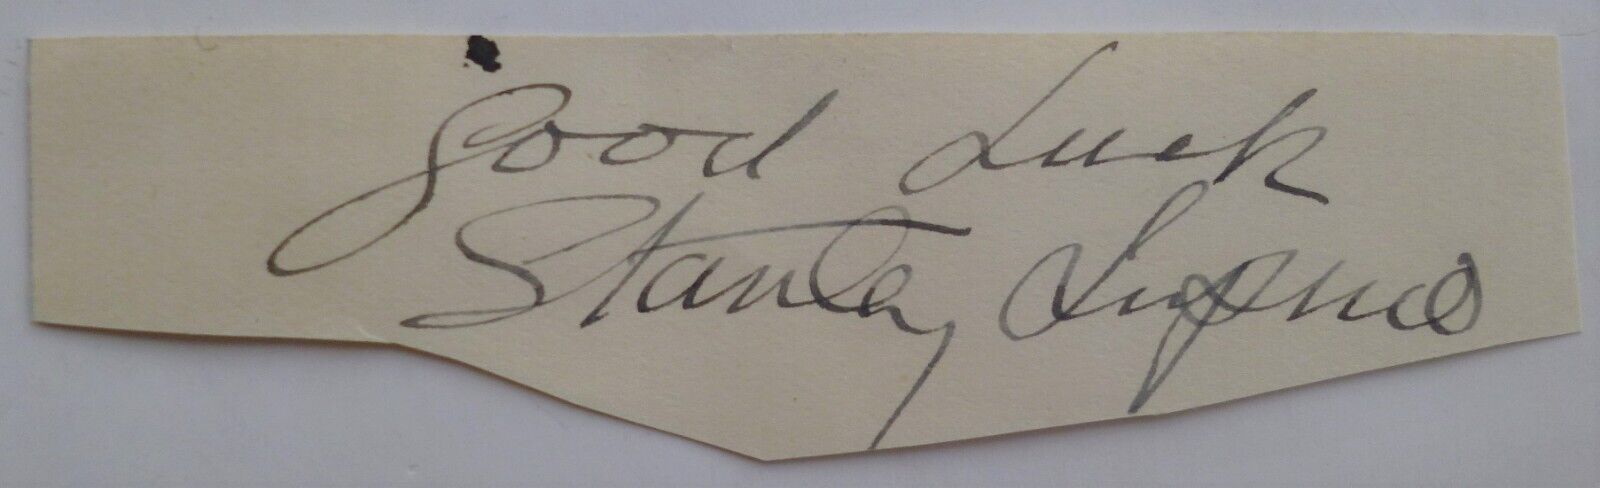 Good Luck
Stanley Lupino